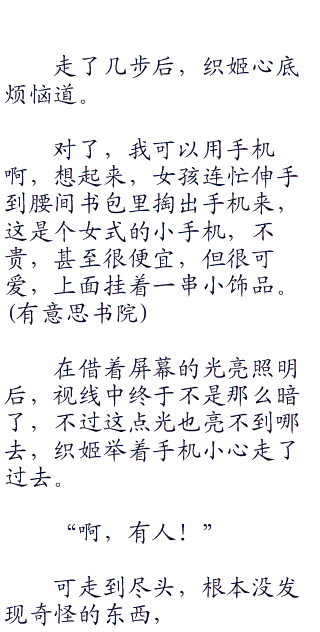 走了几步后，织姬心底
烦恼道。
对了，我可以用手机
啊，想起来，女孩连忙伸手
到腰间书包里掏出手机来，
这是个女式的小手机，不
贵，甚至很便宜，但很可
爱，上面挂着一串小饰品。
(有意思书院)
在借着屏幕的光亮照明
后，视线中终于不是那么暗
了，不过这点光也亮不到哪
去，织姬举着手机小心走了
过去。
“啊，有人！”
可走到尽头，根本没发
现奇怪的东西，